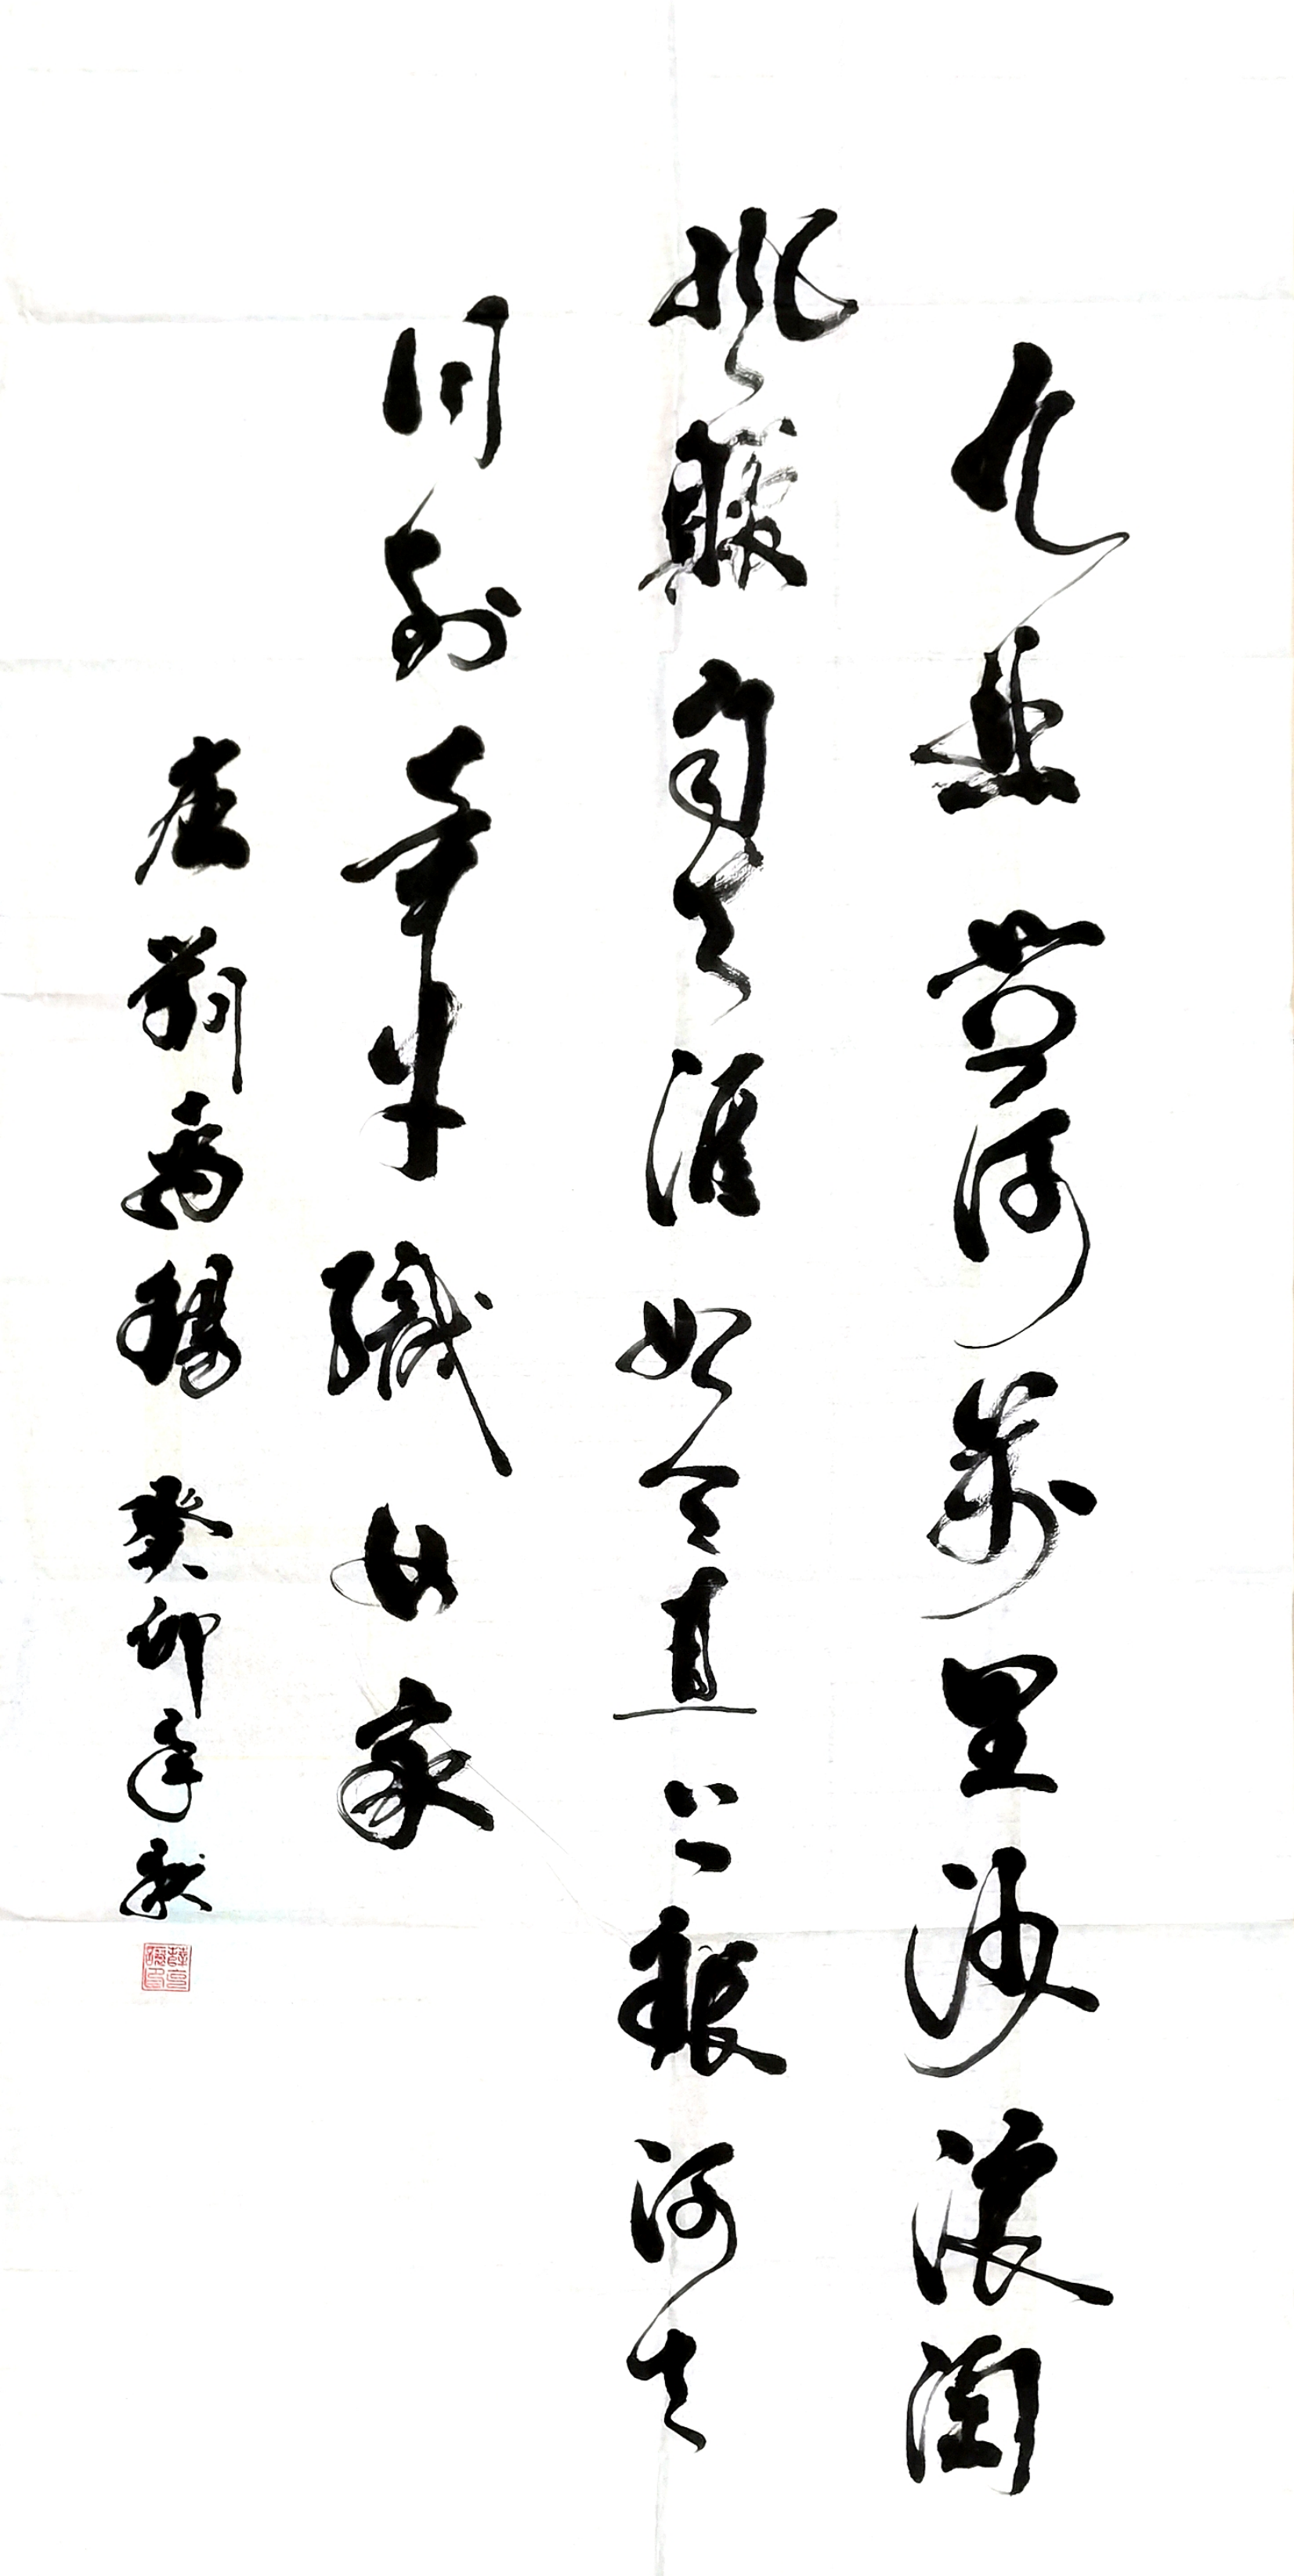 九曲黄河萬里沙浪淘
風簸自天涯如今直上銀河去
同到牽牛織女家
唐劉禹錫 癸卯年秋